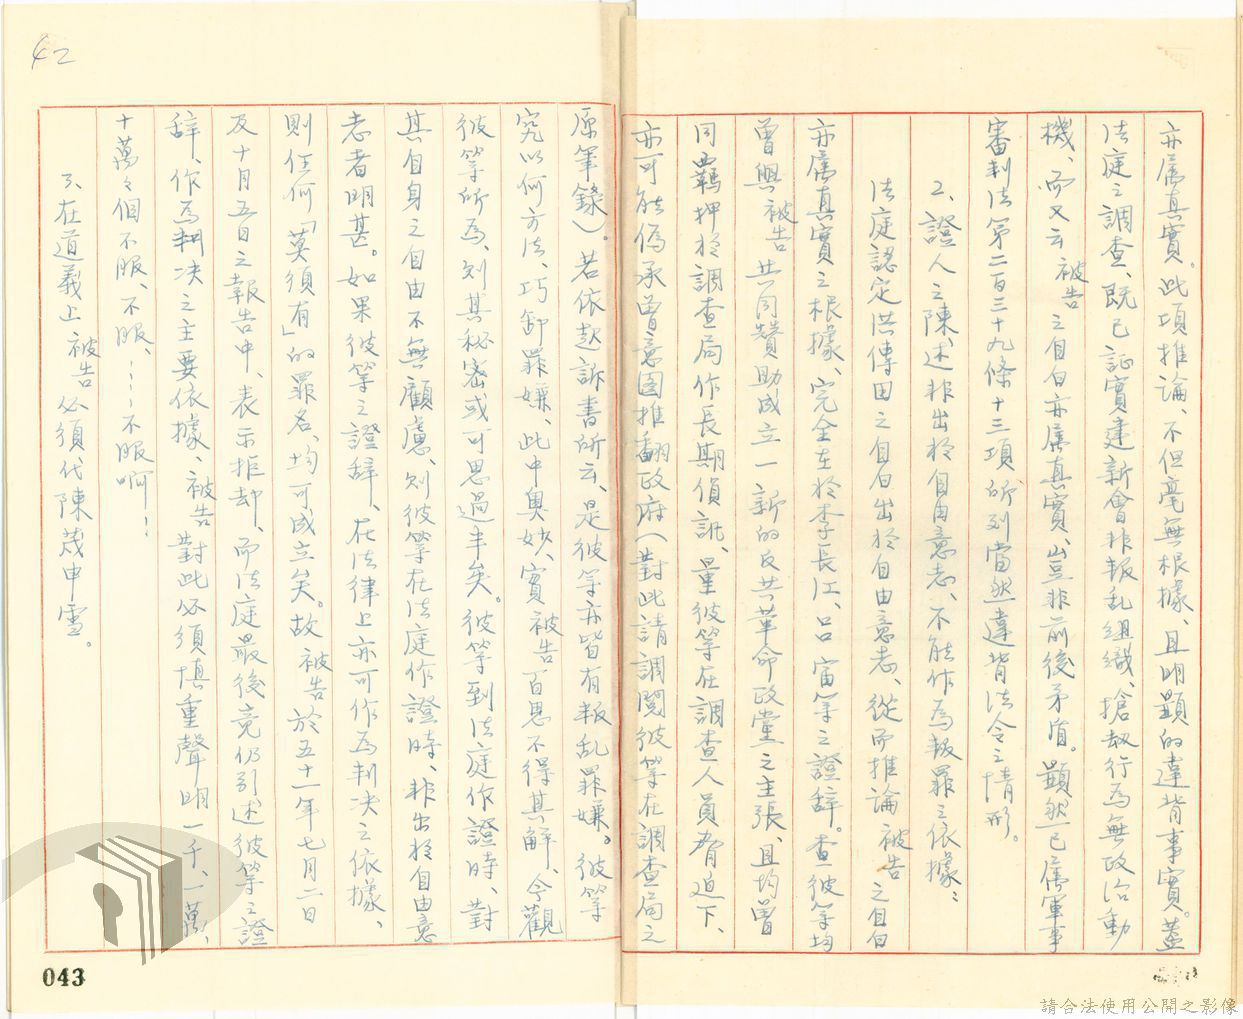 亦屬真實。此項推論、不但毫無根據、且明顯的違背事實。蓋
法庭之調查、既已証實建新會非叛乱組織、搶刼行為無政治動
機、而又云被告之自白亦屬真實、豈非前後矛盾。顯然已屬軍事
審判法第二百三十九條十三項所列當然違背法令之情形。
2、證人之陳述非出於自由意志、不能作為叛罪之依據：
法庭認定洪傳田之自白出於自由意志、從而推論被告之自白
亦屬真實之根據、完全在於李長江、吕甯等之證辞。查彼等均
曾與被告共同贊助成立一新的反共革命政黨之主張、且均曾
同羈押於調查局作長期偵訊、量彼等在調查人員脅迫下、
亦可能偽承曾意圖推翻政府（對此請調閱彼等在調查局之
原筆錄）。若依起訴書所云、是彼等亦皆有叛乱罪嫌。彼等
究以何方法、巧卸罪嫌、此中奥妙、實被告百思不得其解、今觀
彼等所為、則其秘密或可思過半矣。彼等到法庭作證時、對
其自身之自由不無顧慮、則彼等在法庭作證時、非出於自由意
志者明甚。如果彼等之證辞、在法律上亦可作為判决之依據、
則任何「莫須有」的罪名、均可成立矣。故被告於五十一年七月二日
及十月五日之報告中、表示拒却、而法庭最後竟仍引述彼等之證
辞、作為判决之主要依據、被告對此必須慎重聲明一千、一萬、
十萬々個不服、不服、……不服啊！
3、在道義上被告必須代陳茂申雪。
42
043
請合法使用公開之影像